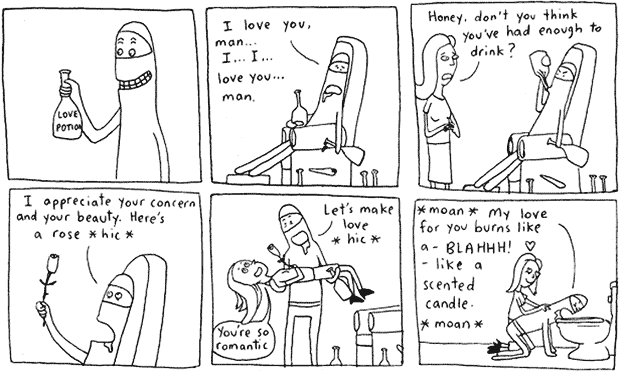 LOVE
POTION
I love you,
man...
I... I...
love you...
man.
Honey, don't you think
you've had enough to
drink?
I appreciate your concern
and your beauty. Here's
a rose *hic*
Let's make
love
*hic*
You're so
romantic
*moan* My love
for you burns like
a- BLAHHH!
- like a
scented
candle.
*moan*